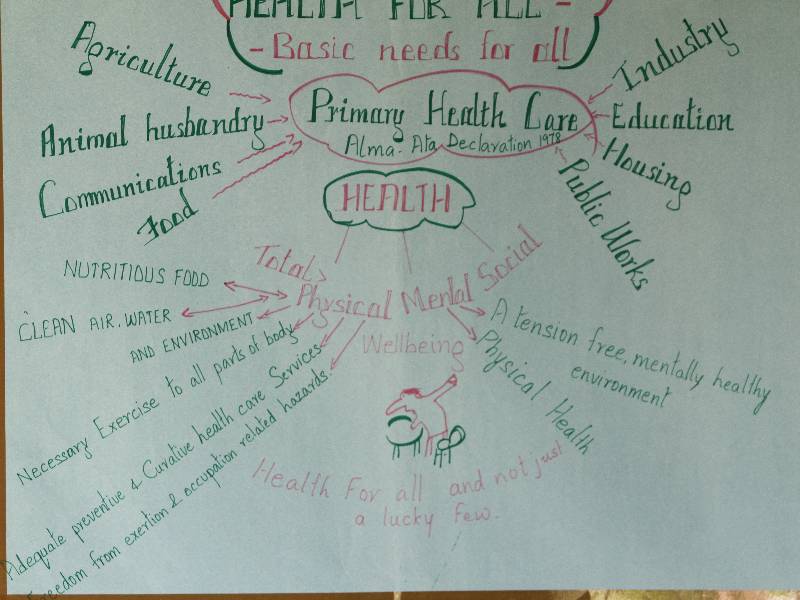 HEALTH FOR ALL -
- Basic needs for all
Agriculture
Animal husbandry
Communications
Food
Primary Health Care
Alma-Ata Declaration 1978
Industry
Education
Housing
Public Works
HEALTH
Total
Physical Mental Social
Wellbeing
NUTRITIOUS FOOD
CLEAN AIR, WATER
AND ENVIRONMENT
Necessary Exercise to all parts of body
Adequate preventive & Curative health care Services
Freedom from exertion & occupation related hazards
A tension free, mentally healthy
environment
Physical Health
Health For all and not just
a lucky few.